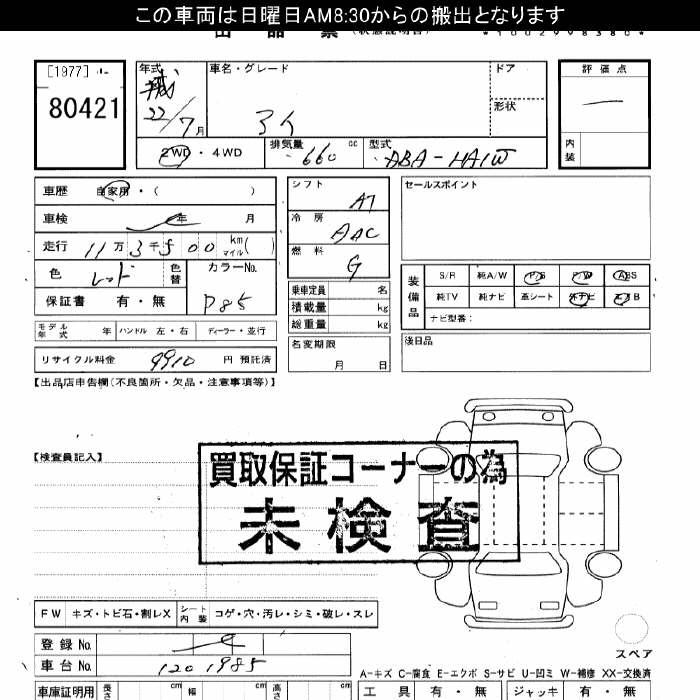 この車両は日曜日AM8:30からの搬出となります
出品票 (状態説明書) *1002998380*
[1977]
80421
年式 平成 22/7月
車名・グレード アイ
ドア
形状
評価点 —
内装
2WD・4WD
排気量 660 cc
型式 ABA-HA1W
車歴 自家用・( )
車検 年 月
走行 11万3千500 km マイル( )
色 レッド 色替
カラーNo. P85
保証書 有・無
シフト AT
冷房 AAC
燃料 G
乗車定員 名
積載量 kg
総重量 kg
名変期限 月 日
セールスポイント
装備品
S/R 純A/W P/S P/W ABS
純TV 純ナビ 革シート 外ナビ エアB
ナビ型番:
後日品
モデル年式 年 ハンドル 左・右 ディーラー・並行
リサイクル料金 9910 円 預託済
【出品店申告欄(不良箇所・欠品・注意事項等)】
【検査員記入】
買取保証コーナーの為
未検査
FW キズ・トビ石・割レX シート内装 コゲ・穴・汚レ・シミ・破レ・スレ
登録 No.
車台 No. 1201985
スペア
A-キズ C-腐食 E-エクボ S-サビ U-凹ミ W-補修 XX-交換済
車庫証明用 長さ cm 幅 cm 高さ cm
工具 有・無 ジャッキ 有・無